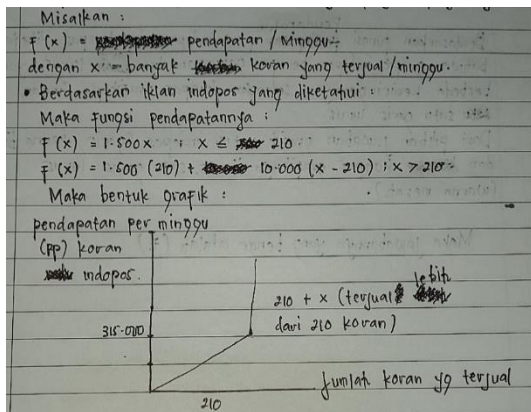 Misalkan :
F (x) = pendapatan / Minggu
dengan x = banyak koran yang terjual / minggu.
• Berdasarkan iklan indopos yang diketahui :
Maka fungsi pendapatannya :
F (x) = 1.500x ; x ≤ 210
F (x) = 1.500 (210) + 10.000 (x - 210) ; x > 210
Maka bentuk grafik :
pendapatan per minggu
(Rp) koran
indopos.
210 + x (terjual lebih
dari 210 koran)
315.000
Jumlah koran yg terjual
210